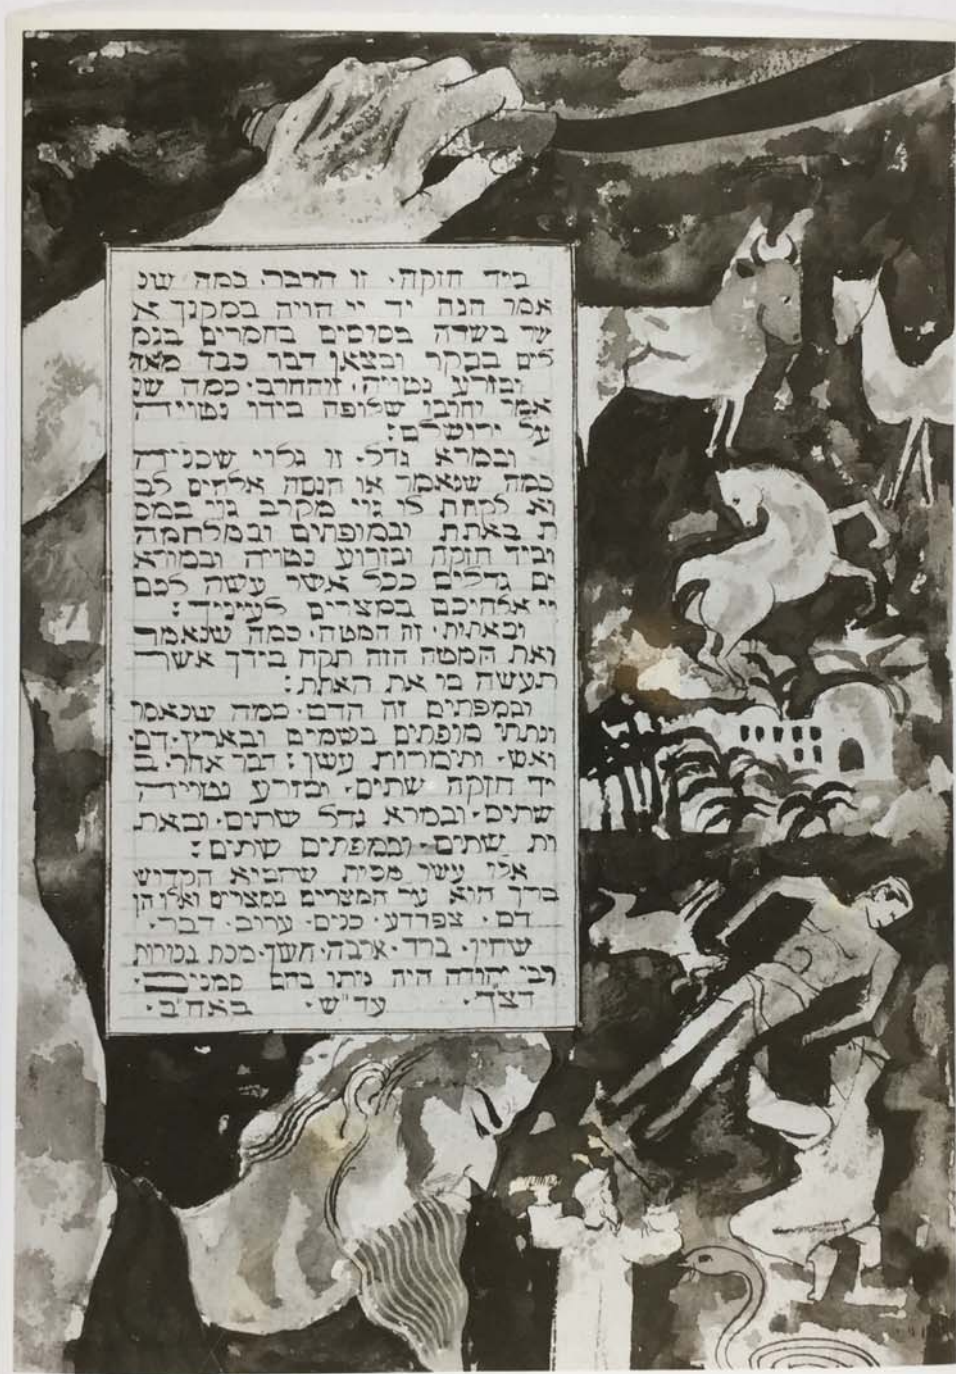 ביד חזקה· זו הדבר· כמה שנ
אמר הנה יד יי הויה במקנך א
שר בשדה בסוסים בחמרים בגמ
לים בבקר ובצאן דבר כבד מאד
ובזרע נטויה· זו החרב· כמה שנ
אמר וחרבו שלופה בידו נטויה
על ירושלם:
ובמרא גדל· זו גלוי שכינה
כמה שנאמר או הנסה אלהים לב
וא לקחת לו גוי מקרב גוי במס
ת באתת ובמופתים ובמלחמה
וביד חזקה ובזרוע נטויה ובמורא
ים גדלים ככל אשר עשה לכם
יי אלהיכם במצרים לעיניך:
ובאתות· זה המטה· כמה שנאמר
ואת המטה הזה תקח בידך אשר
תעשה בו את האתת:
ובמפתים זה הדם· כמה שנאמר
ונתתי מופתים בשמים ובארץ· דם·
ואש· ותימרות עשן: דבר אחר· ב
יד חזקה שתים· ובזרע נטויה
שתים· ובמרא גדל שתים· ובאת
ות שתים· ובמפתים שתים:
אלו עשר מכות שהביא הקדוש
ברך הוא על המצרים במצרים ואלו הן
דם· צפרדע· כנים· ערוב· דבר·
שחין· ברד· ארבה· חשך· מכת בכורות
רבי יהודה היה נותן בהם סמנים·
דצך· עד"ש· באח"ב·